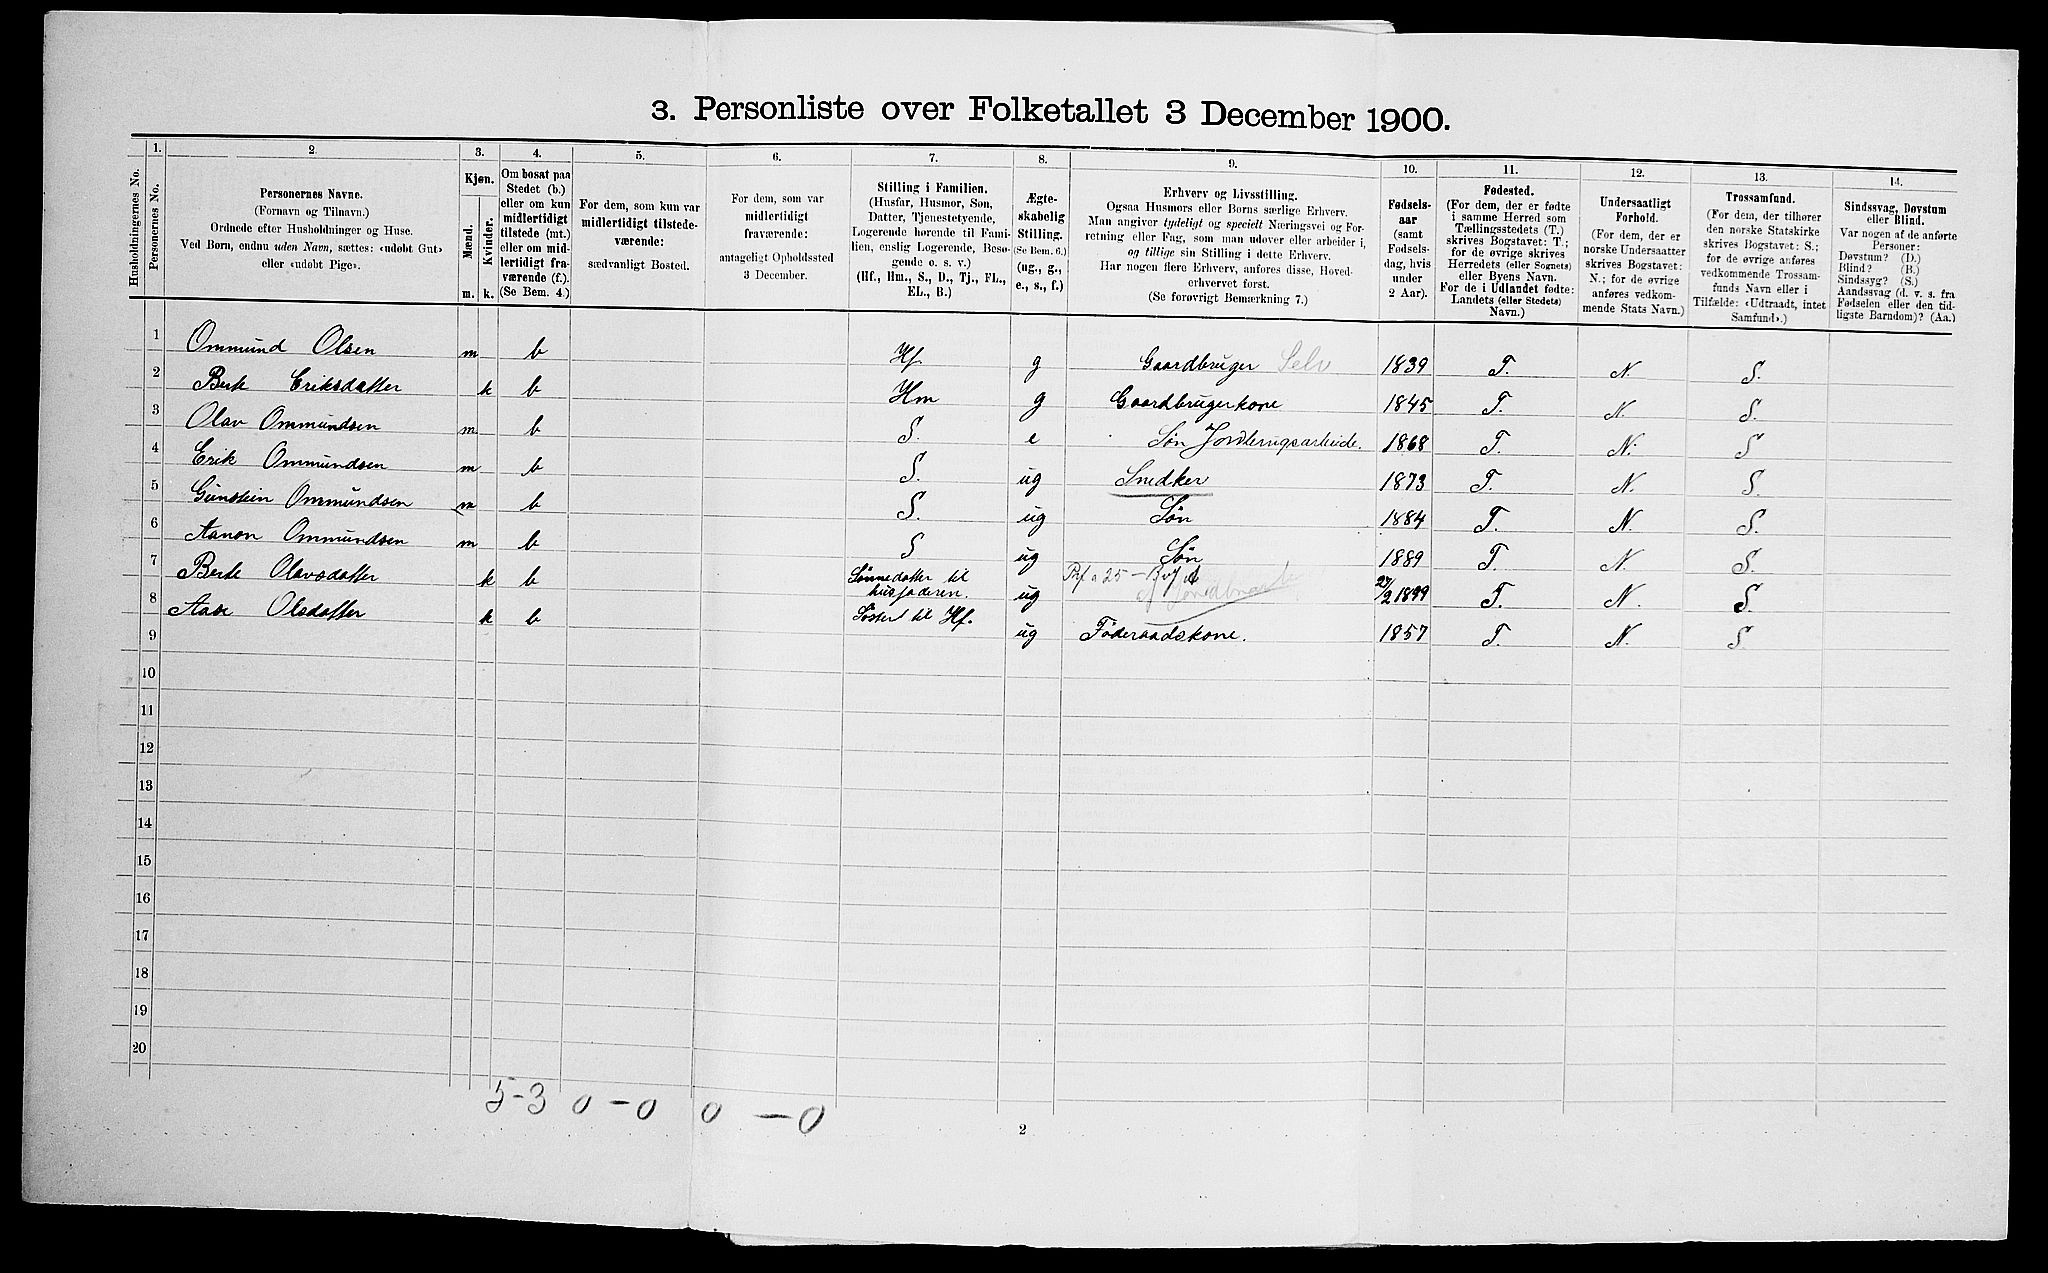 3. Personliste over Folketallet 3 December 1900.
Husholdningernes No.
1.
Personernes No.
2.
Personernes Navne.
(Fornavn og Tilnavn.)
Ordnede efter Husholdninger og Huse.
Ved Børn, endnu uden Navn, sættes: «udøbt Gut»
eller «udøbt Pige».
3.
Kjøn.
Mænd.
Kvinder.
m. k.
4.
Om bosat paa
Stedet (b.)
eller om kun
midlertidigt
tilstede (mt.)
eller om mid-
lertidigt fra-
værende (f.).
(Se Bem. 4.)
5.
For dem, som kun var
midlertidigt tilstede-
værende:
sædvanligt Bosted.
6.
For dem, som var
midlertidigt
fraværende:
antageligt Opholdssted
3 December.
7.
Stilling i Familien.
(Husfar, Husmor, Søn,
Datter, Tjenestetyende,
Logerende hørende til Fami-
lien, enslig Logerende, Besø-
gende o. s. v.)
(Hf., Hm., S., D., Tj., FL.,
EL., B.)
8.
Ægte-
skabelig
Stilling.
(Se Bem. 6.)
(ug., g.,
e., s., f.)
9.
Erhverv og Livsstilling.
Ogsaa Husmors eller Børns særlige Erhverv.
Man angiver tydeligt og specielt Næringsvei og For-
retning eller Fag, som man udøver eller arbeider i,
og tillige sin Stilling i dette Erhverv.
Har nogen flere Erhverv, anføres disse, Hoved-
erhvervet først.
(Se forøvrigt Bemærkning 7.)
10.
Fødsels-
aar
(samt
Fødsels-
dag, hvis
under
2 Aar).
11.
Fødested.
(For dem, der er fødte
i samme Herred som
Tællingsstedets (T.)
skrives Bogstavet: T.;
for de øvrige skrives
Herredets (eller Sognets)
eller Byens Navn.
For de i Udlandet fødte:
Landets (eller Stedets)
Navn.)
12.
Undersaatligt
Forhold.
(For dem, der er
norske Undersaatter
skrives Bogstavet:
N.; for de øvrige
anføres vedkom-
mende Stats Navn.)
13.
Trossamfund.
(For dem, der tilhører
den norske Statskirke
skrives Bogstavet: S.;
for de øvrige anføres
vedkommende Trossam-
funds Navn eller i
Tilfælde: «Udtraadt, intet
Samfund».)
14.
Sindssvag, Døvstum
eller Blind.
Var nogen af de anførte
Personer:
Døvstum? (D.)
Blind? (B.)
Sindssyg? (S.)
Aandssvag (d. v. s. fra
Fødselen eller den tid-
ligste Barndom)? (Aa.)
1 Ommund Olsen m b Hf. g Gaardbruger Selv 1839 T. N. S.
2 Berte Eriksdatter k b Hm g Gaardbrugerkone 1845 T. N. S.
3 Olav Ommundsen m b S. e Søn Jordbrugsarbeide. 1868 T. N. S
4 Erik Ommundsen m b S. ug Snedker 1873 T. N. S.
5 Gunstein Ommundsen m b S. ug Søn 1884 T. N. S.
6 Aanon Ommundsen m b S ug Søn 1889 T. N. S.
7 Berte Olavsdatter k b Sønnedatter til
husfaderen. ug 27/2 1899 T. N. S.
8 Aase Olsdatter k b Søster til Hf. ug Føderaadskone. 1857 T. N. S.
9
10
11
12
13
14
15
16
17
18
19
20
5-3 0-0 0-0
2